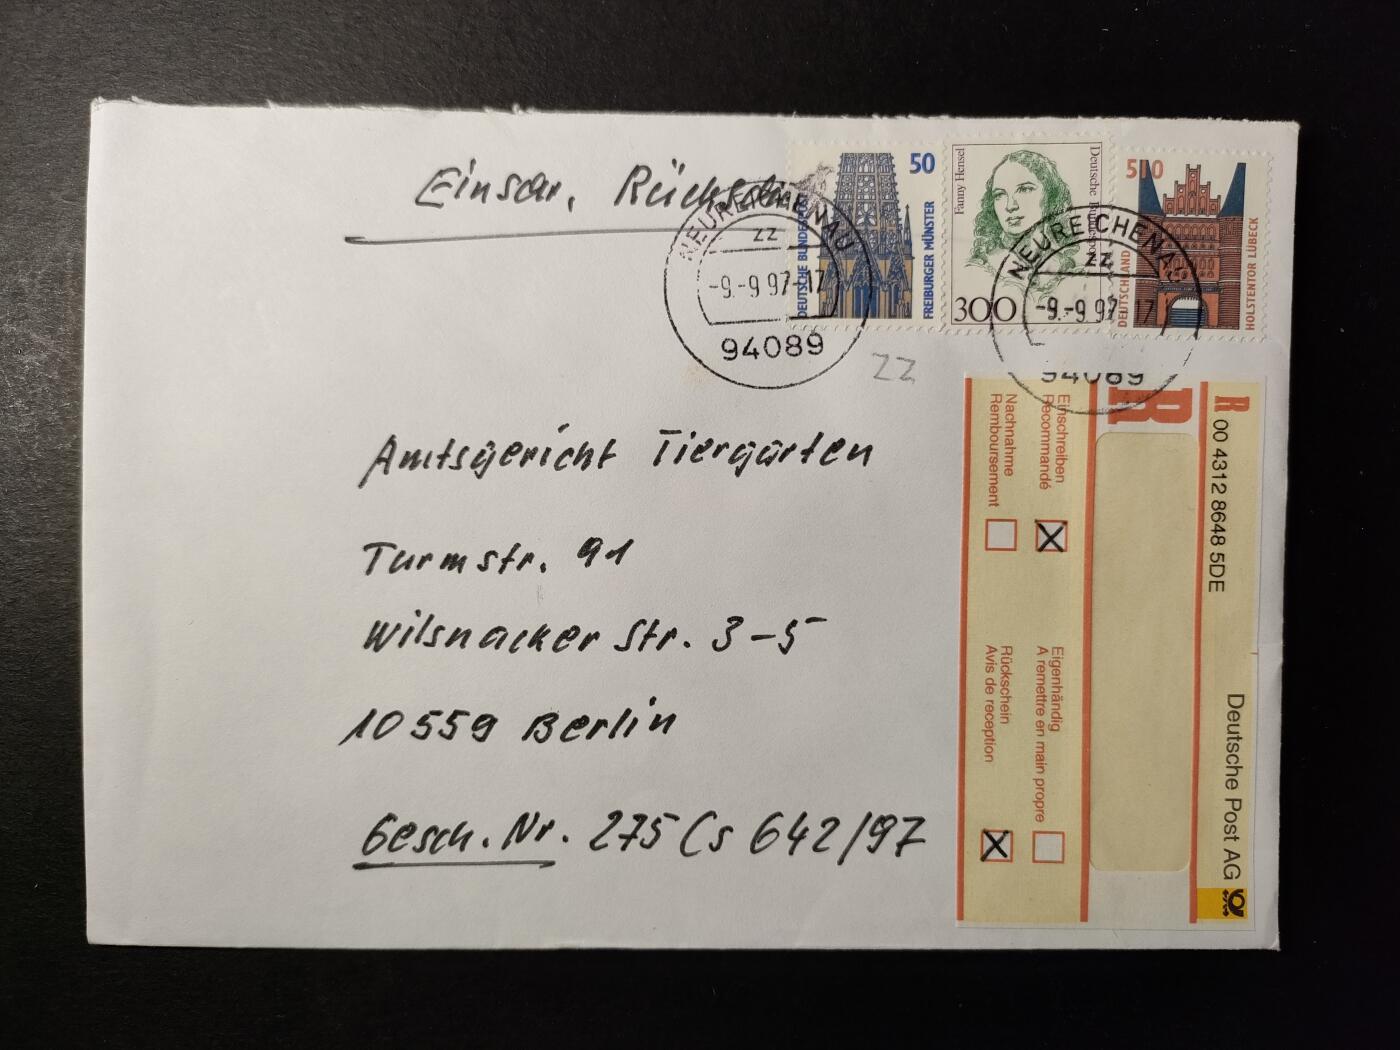 Einschr. Rückschein
50
DEUTSCHE BUNDESPOST
FREIBURGER MÜNSTER
Fanny Hensel
Deutsche Bundespost
300
510
DEUTSCHLAND
HOLSTENTOR LÜBECK
NEUREICHENAU
zz
-9.-9.97-17
94089
NEUREICHENAU
zz
-9.-9.97-17
94089
ZZ
Amtsgericht Tiergarten
Turmstr. 91
Wilsnacker Str. 3-5
10559 Berlin
Gesch. Nr. 275 Cs 642/97
R 00 4312 8648 5DE
Deutsche Post AG
R
Einschreiben
Recommandé
Nachnahme
Remboursement
Eigenhändig
A remettre en main propre
Rückschein
Avis de reception